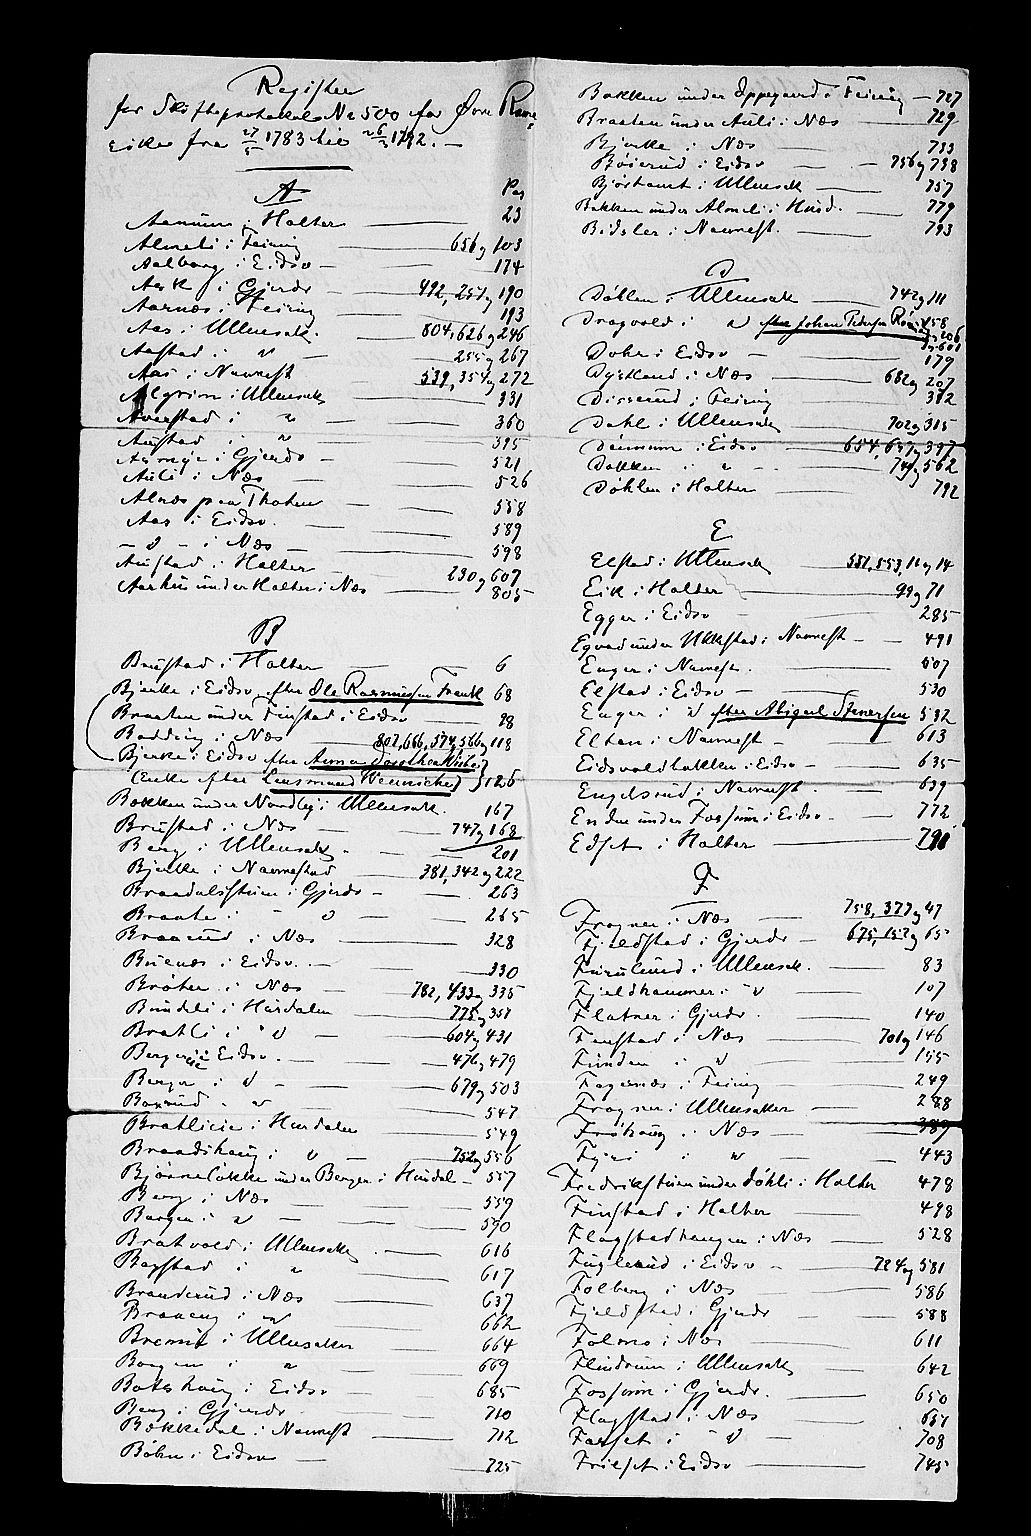 Register
for Skifteprotokol No 500 for Øvre Rome-
rike fra 27/5 1783 til 26/2 1792. —
A
Pag
Aamum i Holter — 23
Almeli i Feiring — 656 og 103
Aalborg i Eidsv — 174
Aask i Gjerdr — 492, 251 og 190
Aarnæs i Feiring — 193
Aas i Ullensak. — 804, 626 og 246
Aastad i " — 255 og 267
Aas i Nannest — 539, 354 og 272
Algrim i Ullensak — 331
Averstad i " — 360
Austad i " — 395
i Gjerdr — 521
Auli i Næs — 526
Alnæs paa Thoten — 558
Aas i Eidsv. — 589
— " — i Næs — 598
Austad i Holter — 230 og 607
Aarhus under Holter i Næs — 805
B
Brustad i Holter — 6
Bjerke i Eidsv. efter Ole Rasmussen Frank 68
Braaten under Finstad i Eidsv — 88
Bodding i Næs — 802, 666, 574, 566 og 118
Bjerke i Eidsv efter Anna Dorothea
(Enke efter Lensmand Wennische) } 126
Bakken under Nordby i Ullensak. 167
Brustad i Næs — 747 og 168
Berg i Ullensak. — 201
Bjerke i Nannestad — 381, 342 og 222
Brandalsstuen i Gjerdr — 263
Braate i " — 265
Braarud i Næs — 328
Buenæs i Eidsv. — 330
Bråten i Næs — 782, 433 og 335
Bundli i Hurdalen — 775 og 351
Bratli i " — 604 og 431
Berger i Eidsv. — 476 og 479
Berger i " — 679 og 503
Borrud " — 547
Bratlien i Hurdalen — 549
Brandshaug i " — 752 og 556
Bjørneløkke under Bergen i Hurdal — 557
Berg i Næs — 559
Borgen i " — 590
Bratvold i Ullensak — 616
Bogstad i " — 617
Branderud i Næs — 637
Braaeng i " — 662
Bremit i Ullensaker — 664
Borgen i " — 669
Boteshaug i Eidsv — 685
Berg i Gjerdr — 710
Bækkedal i Nannest — 712
Böhn i Eidsv — 725
Bakken under Oppegaard i Feiring — 727
Braaten under Auli i Næs — 729
Bjerke i Næs — 733
Böierud i Eidsv — 756 og 738
Bjørtomt i Ullensak — 757
Bakken under Almeli i Hurd. — 779
Bidsler i Nannest. — 793
D
Döhlen i Ullensak — 742 og 111
Dragvold i " efter Johan Pedersen 158
og 206
og 601
Dohr i Eidsv — 179
Dystland i Næs — 682 og 207
Disserud i Feiring — 312
Dahl i Ullensak — 702 og 315
i Eidsv — 654, 637 og 397
Dokken i " — 749 og 562
Döhlen i Holter — 792
E
Elstad i Ullensak — 551, 553, 16 og 14
Eik i Holter — 99 og 71
Egger i Eidsv — 285
under Ukkestad i Nannest — 491
Enger i Nannest. — 507
Elstad i Eidsv — 530
Enger i " efter Abigael Stenersen 532
Eltan i Nannest — 613
Eidsvoldbakken i Eidsv — 635
Engelsrud i Nannest. — 639
Enden under Fossum i Eidsv — 772
Edset i Holter — 791
F
Frogner i Næs — 758, 377 og 47
Fjeldstad i Gjerdr — 675, 152 og 65
Furulund i Ullensak. — 83
Fjeldhammer i " — 107
Flatner i Gjerdr. — 140
Finstad i Næs — 701 og 146
Funden i " — 155
Fagernæs i Feiring — 249
Frogner i Ullensaker — 288
Fröhaug i Næs — 389
Fyri i " — 443
Fredrikstuen under Döhli i Holter 478
Finstad i Holter — 498
Flagstadhaugen i Næs — 528
Fuglerud i Eidsv — 724 og 581
Folberg i Næs — 586
Fjeldstad i Gjerdr — 588
Folmo i Næs — 611
Flindrum i Ullensak — 642
Fossum i Gjerdr. — 650
Flagstad i Næs — 651
Farset i " — 708
Frilset i Eidsv — 745